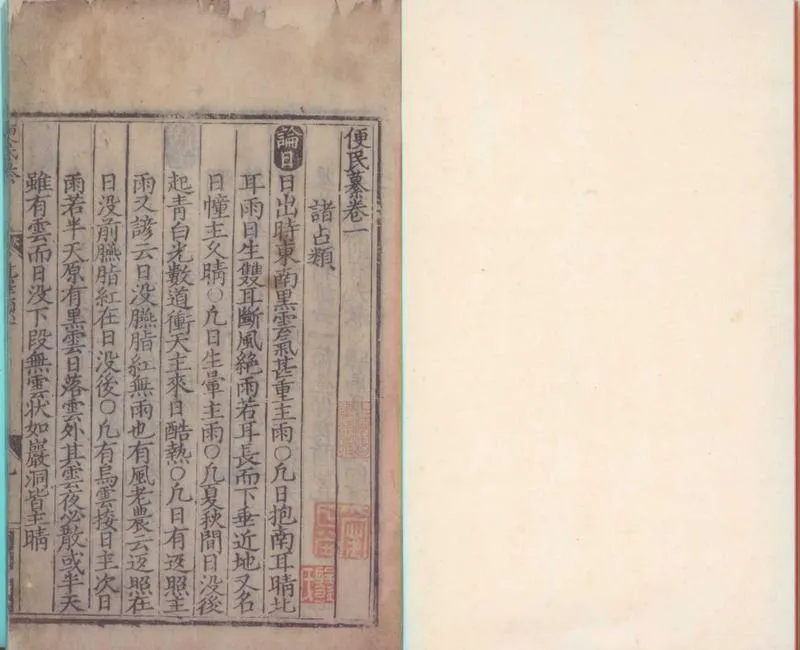 便民纂卷一
諸占類
論日 日出時東南黑雲氣甚重主雨〇凣日抱南耳晴北
耳雨日生雙耳斷風絶雨若耳長而下垂近地又名
日幢主乆晴〇凣日生暈主雨〇凣夏秋間日没後
起青白光數道衝天主來日酷熱〇凣日有返照主
雨又諺云日没臙脂紅無雨也有風老農云返照在
日没前臙脂紅在日没後〇凣有烏雲接日主次日
雨若半天原有黒雲日落雲外其雲夜必散或半天
雖有雲而日没下段無雲状如巖洞皆主晴